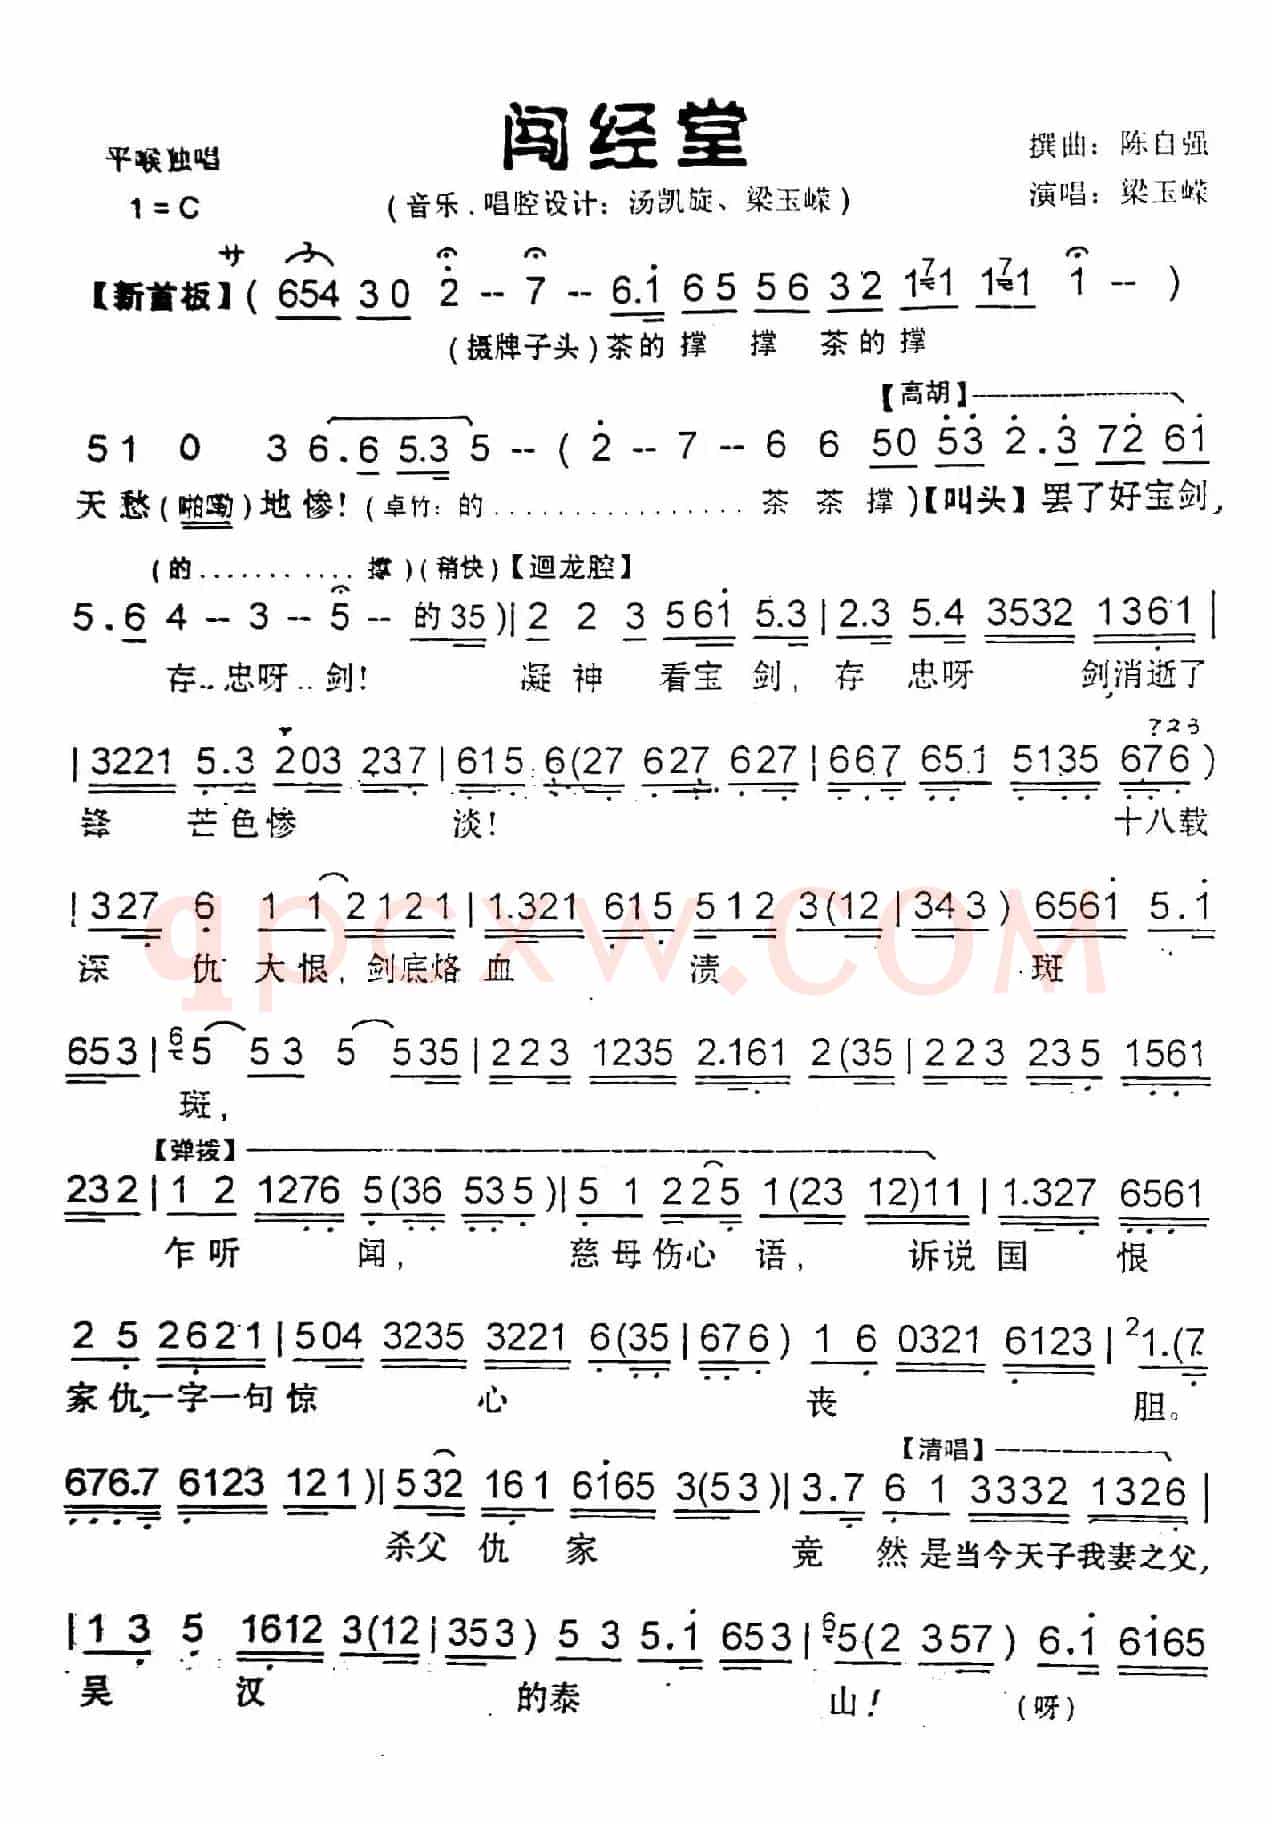 闯经堂
平喉独唱
1=C
(音乐.唱腔设计：汤凯旋、梁玉嵘)
撰曲：陈自强
演唱：梁玉嵘
サ
【新首板】( 654 3 0 2 -- 7 -- 6.1 6 5 5 6 3 2 1 7 1 1 7 1 1 -- )
(摄牌子头)茶的撑 撑 茶的撑
【高胡】
5 1 0 3 6.6 5.3 5 -- ( 2 -- 7 -- 6 6 50 53 2.3 72 61
天愁(啪嘞)地惨!(卓竹：的................茶茶撑)【叫头】罢了好宝剑,
(的...........撑)(稍快)【迴龙腔】
5.6 4 -- 3 -- 5 -- 的35)| 2 2 3 561 5.3 | 2.3 5.4 3532 1361 |
存..忠呀..剑! 凝神 看宝剑,存 忠呀 剑消逝了
723
| 3221 5.3 203 237 | 615 6(27 627 627 | 667 65.1 5135 676 )
锋 芒色惨 淡! 十八载
| 327 6 1 1 2121 | 1.321 615 512 3(12 | 343 ) 6561 5.1
深 仇大恨,剑底烙血 渍 斑
qpcxw.COM
653 | 6 5 53 5 535 | 223 1235 2.161 2(35 | 223 235 1561
斑,
【弹拨】
232 | 1 2 1276 5(36 535 )| 5 1 225 1(23 12)11 | 1.327 6561
乍听 闻, 慈母伤心语, 诉说国 恨
2 5 2621 | 504 3235 3221 6(35 | 676 ) 1 6 0321 6123 | 2 1.(7
家仇,一字一句惊 心 丧 胆。
【清唱】
676.7 6123 121 )| 532 161 6165 3(53 )| 3.7 6 1 3332 1326 |
杀父仇 家 竟 然是当今天子我妻之父,
| 1 3 5 1612 3(12 | 353 ) 5 3 5.1 653 | 6 5(2 357 ) 6.1 6165
吴 汉 的泰 山! (呀)